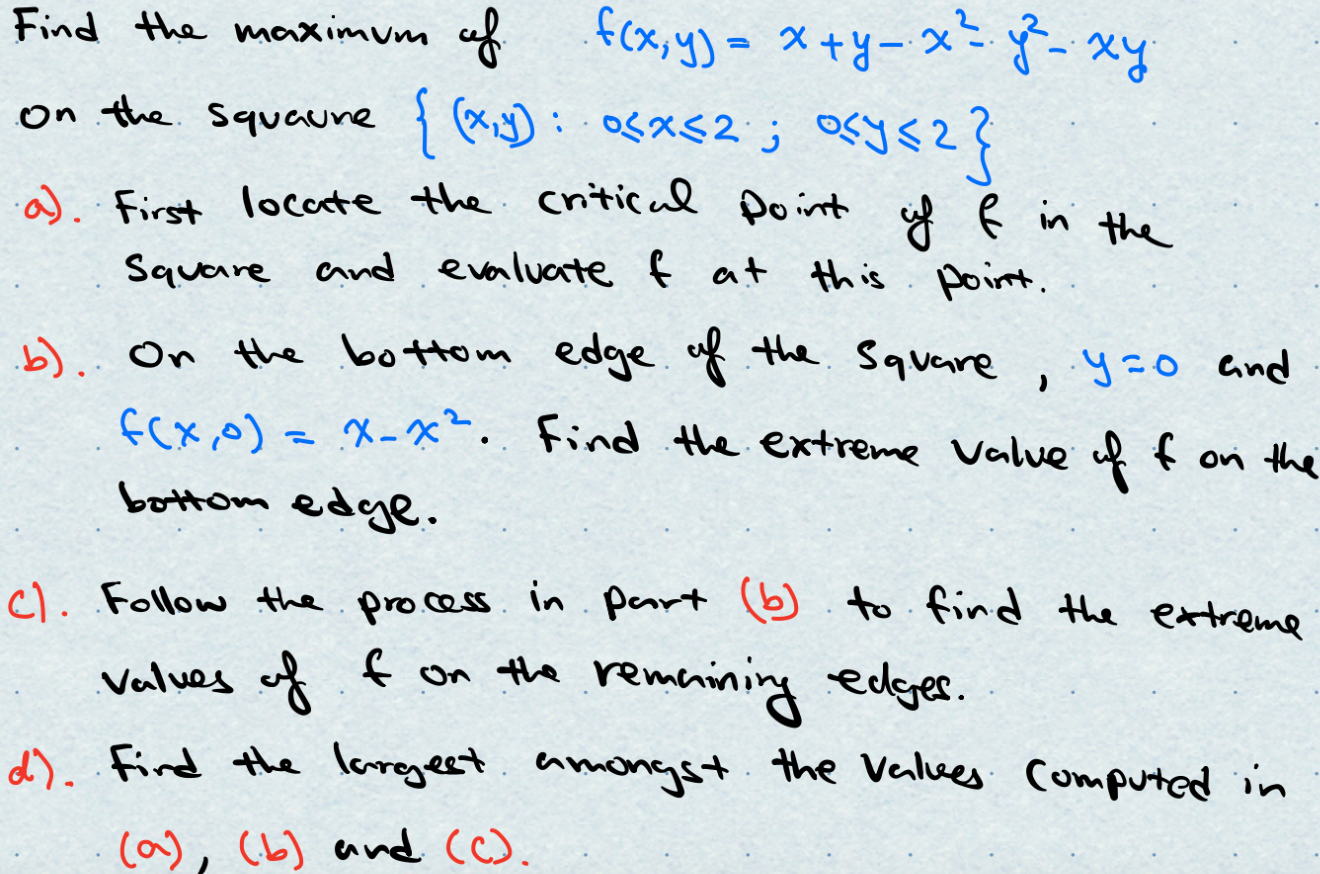 Find the maximum of f(x,y) = x + y - x² - y² - xy
on the squaure { (x,y) : 0≤x≤2 ; 0≤y≤2 }
a). First locate the critical point of f in the
square and evaluate f at this point.
b). On the bottom edge of the square , y=0 and
f(x,0) = x-x². Find the extreme value of f on the
bottom edge.
c). Follow the process in part (b) to find the extreme
values of f on the remaining edges.
d). Find the largest amongst the values computed in
(a), (b) and (c).